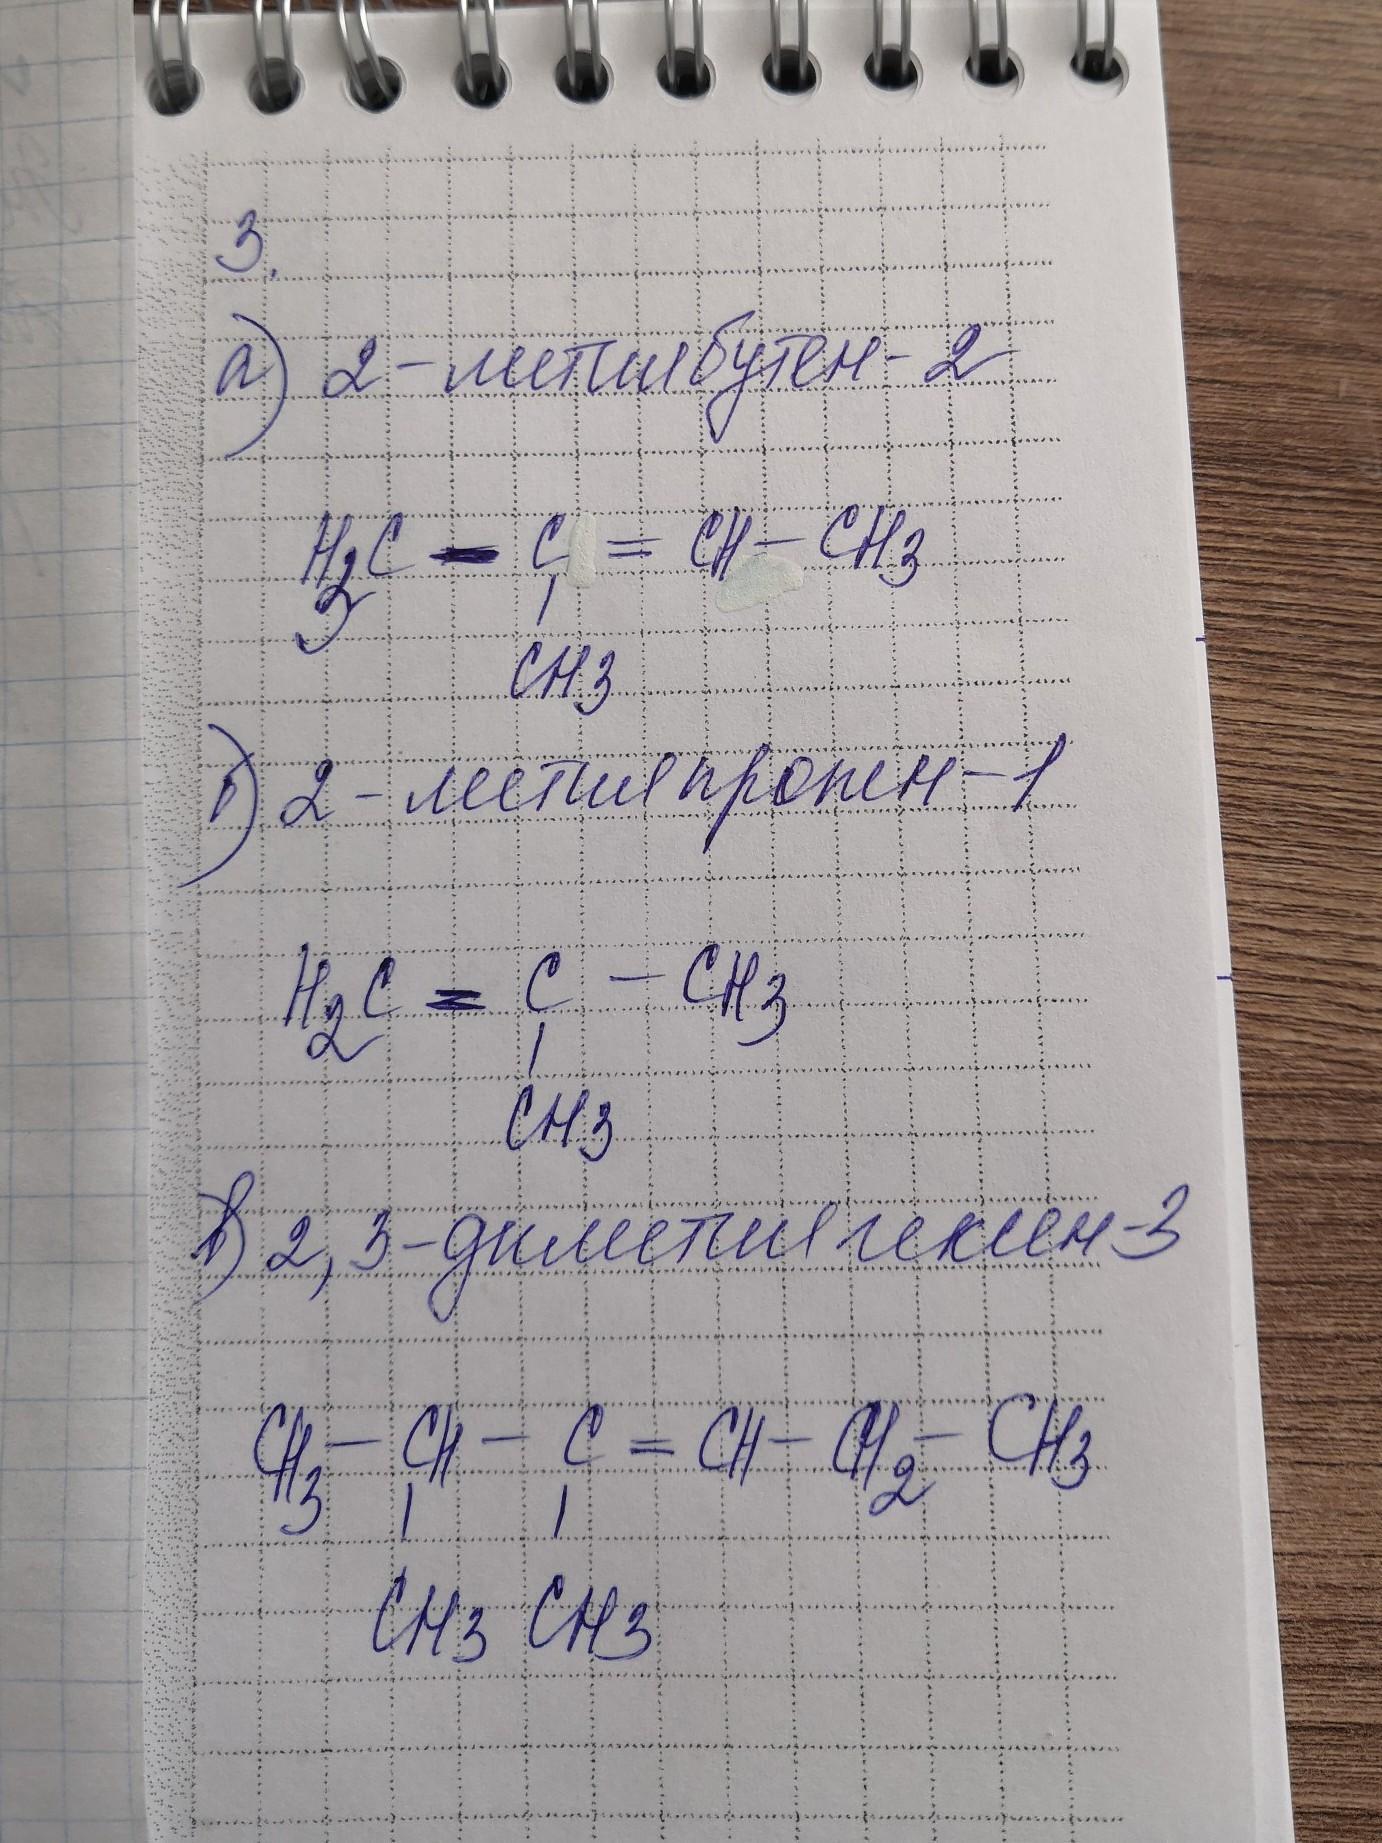 3.
а) 2-метилбутен-2
H3C - C = CH - CH3
|
CH3
б) 2-метилпропен-1
H2C = C - CH3
|
CH3
в) 2,3-диметилгексен-3
CH3 - CH - C = CH - CH2 - CH3
| |
CH3 CH3